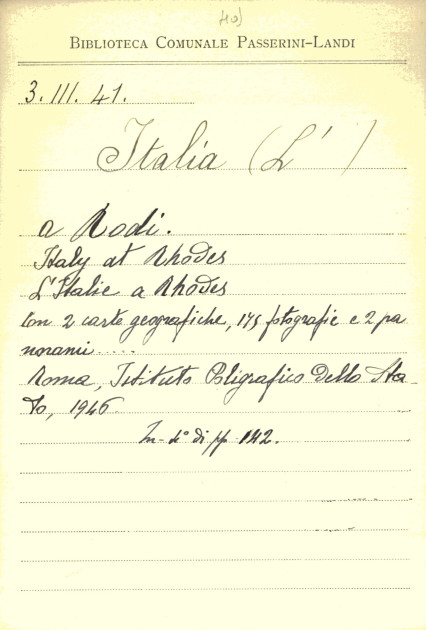 40)
BIBLIOTECA COMUNALE PASSERINI-LANDI
3. III. 41.
Italia (L' )
a Rodi.
Italy at Rhodes
L'Italie a Rhodes
Con 2 carte geografiche, 175 fotografie e 2 pa
noranii.....
Roma, Istituto Poligrafico Dello Sta-
to, 1946.
In-4° di pp 142.